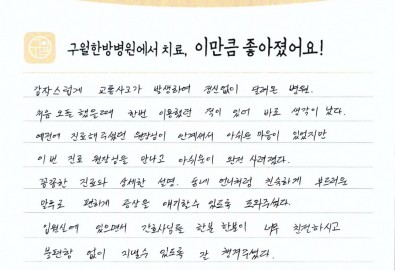 구월한방병원에서 치료, 이만큼 좋아졌어요!
갑작스럽게 교통사고가 발생하여 정신없이 달려온 병원.
처음 오는 했을때 한번 이용했던 적이 있어 바로 생각이 났다.
예전에 진료해주셨던 원장님이 안계셔서 아쉬운 마음이 있었지만
이번 진료 원장님을 만나고 아쉬움이 완전 사라졌다.
꼼꼼한 진료와 상세한 설명. 동네 언니처럼 친숙하게 부드러운
말투로 편하게 증상을 얘기할수 있도록 도와주셨다.
입원실에 있으면서 간호사님들 한분 한분이 너무 친절하시고
불편함 없이 지낼수 있도록 잘 챙겨주셨다.